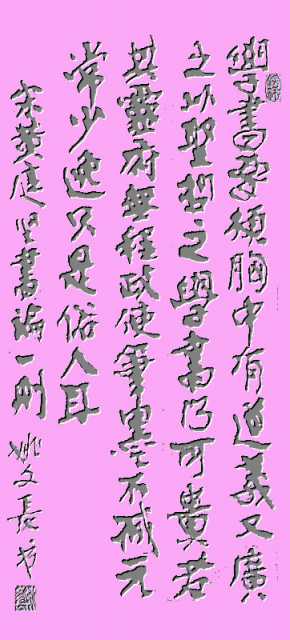 學書要須胸中有道義又廣
之以聖哲之學書乃可貴若
其靈府無程政使筆墨不減元
常少逸只是俗人耳
宋黄庭坚書論一則 姚文長书